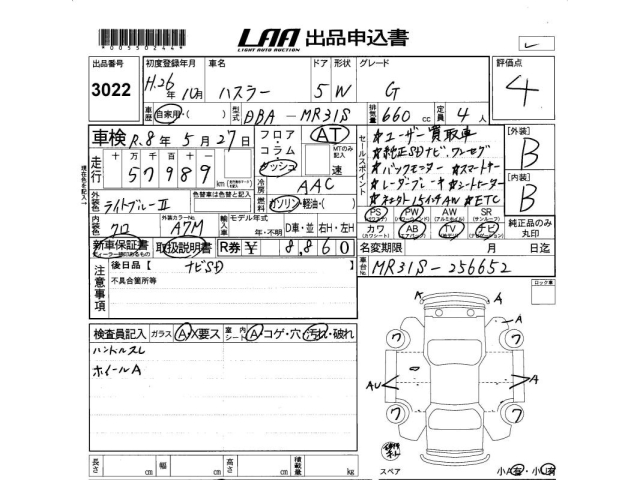 *00550244*
LAA 出品申込書
LIGHT AUTO AUCTION
出品番号 初度登録年月 車名 ドア 形状 グレード 評価点
3022 H.26年 10月 ハスラー 5 W G 4
車歴 自家用・( ) 型式 DBA-MR31S 排気量 660 cc 定員 4 人
車検 R.8年 5月 27日 フロア・コラム・インパネ AT セールスポイント ★ユーザー買取車 [外装] B
走行 十万千百十一 MTのみ記入 速 ★純正SDナビ.ワンセグ
57989 km ★バックモーター ★スマートキー [内装] B
冷房 AAC ★レーダーブレーキ ★シートヒーター
現在色を記入→
外装色 色替車は色替と記入 燃料 ガソリン・軽油・( )
ライトブルーⅡ PS PW AW SR 純正品のみ丸印
内装色 クロ 外装カラーNo. A7M 輸入車 モデル年式 年式・不明 D車・並 右H・左H カワ AB TV ナビ
新車保証書 取扱説明書 R券 ¥ 8,860 名変期限 月 日迄
注意事項 後日品【 ナビSD 】 車台No. MR31S-256652
不具合箇所等 ロック車
検査員記入 ガラス A・X要ス 室内シート A・コゲ・穴 汚れ・破れ
ハンドルスレ
ホイールA
K A
A
ワ ワ
AU A
ワ ワ
長さ cm 幅 cm 高さ cm 積載量 kg スペア 小A有・小U有